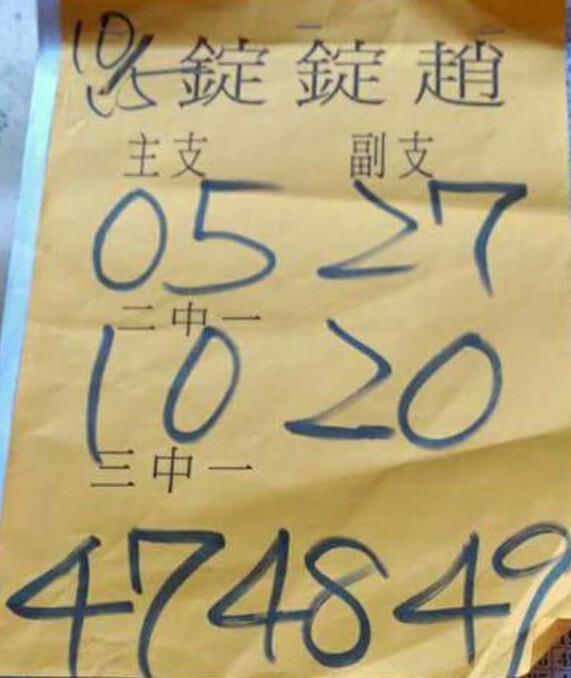 10/5 錠錠趙
主支 副支
05 27
二中一
10 20
三中一
47 48 49